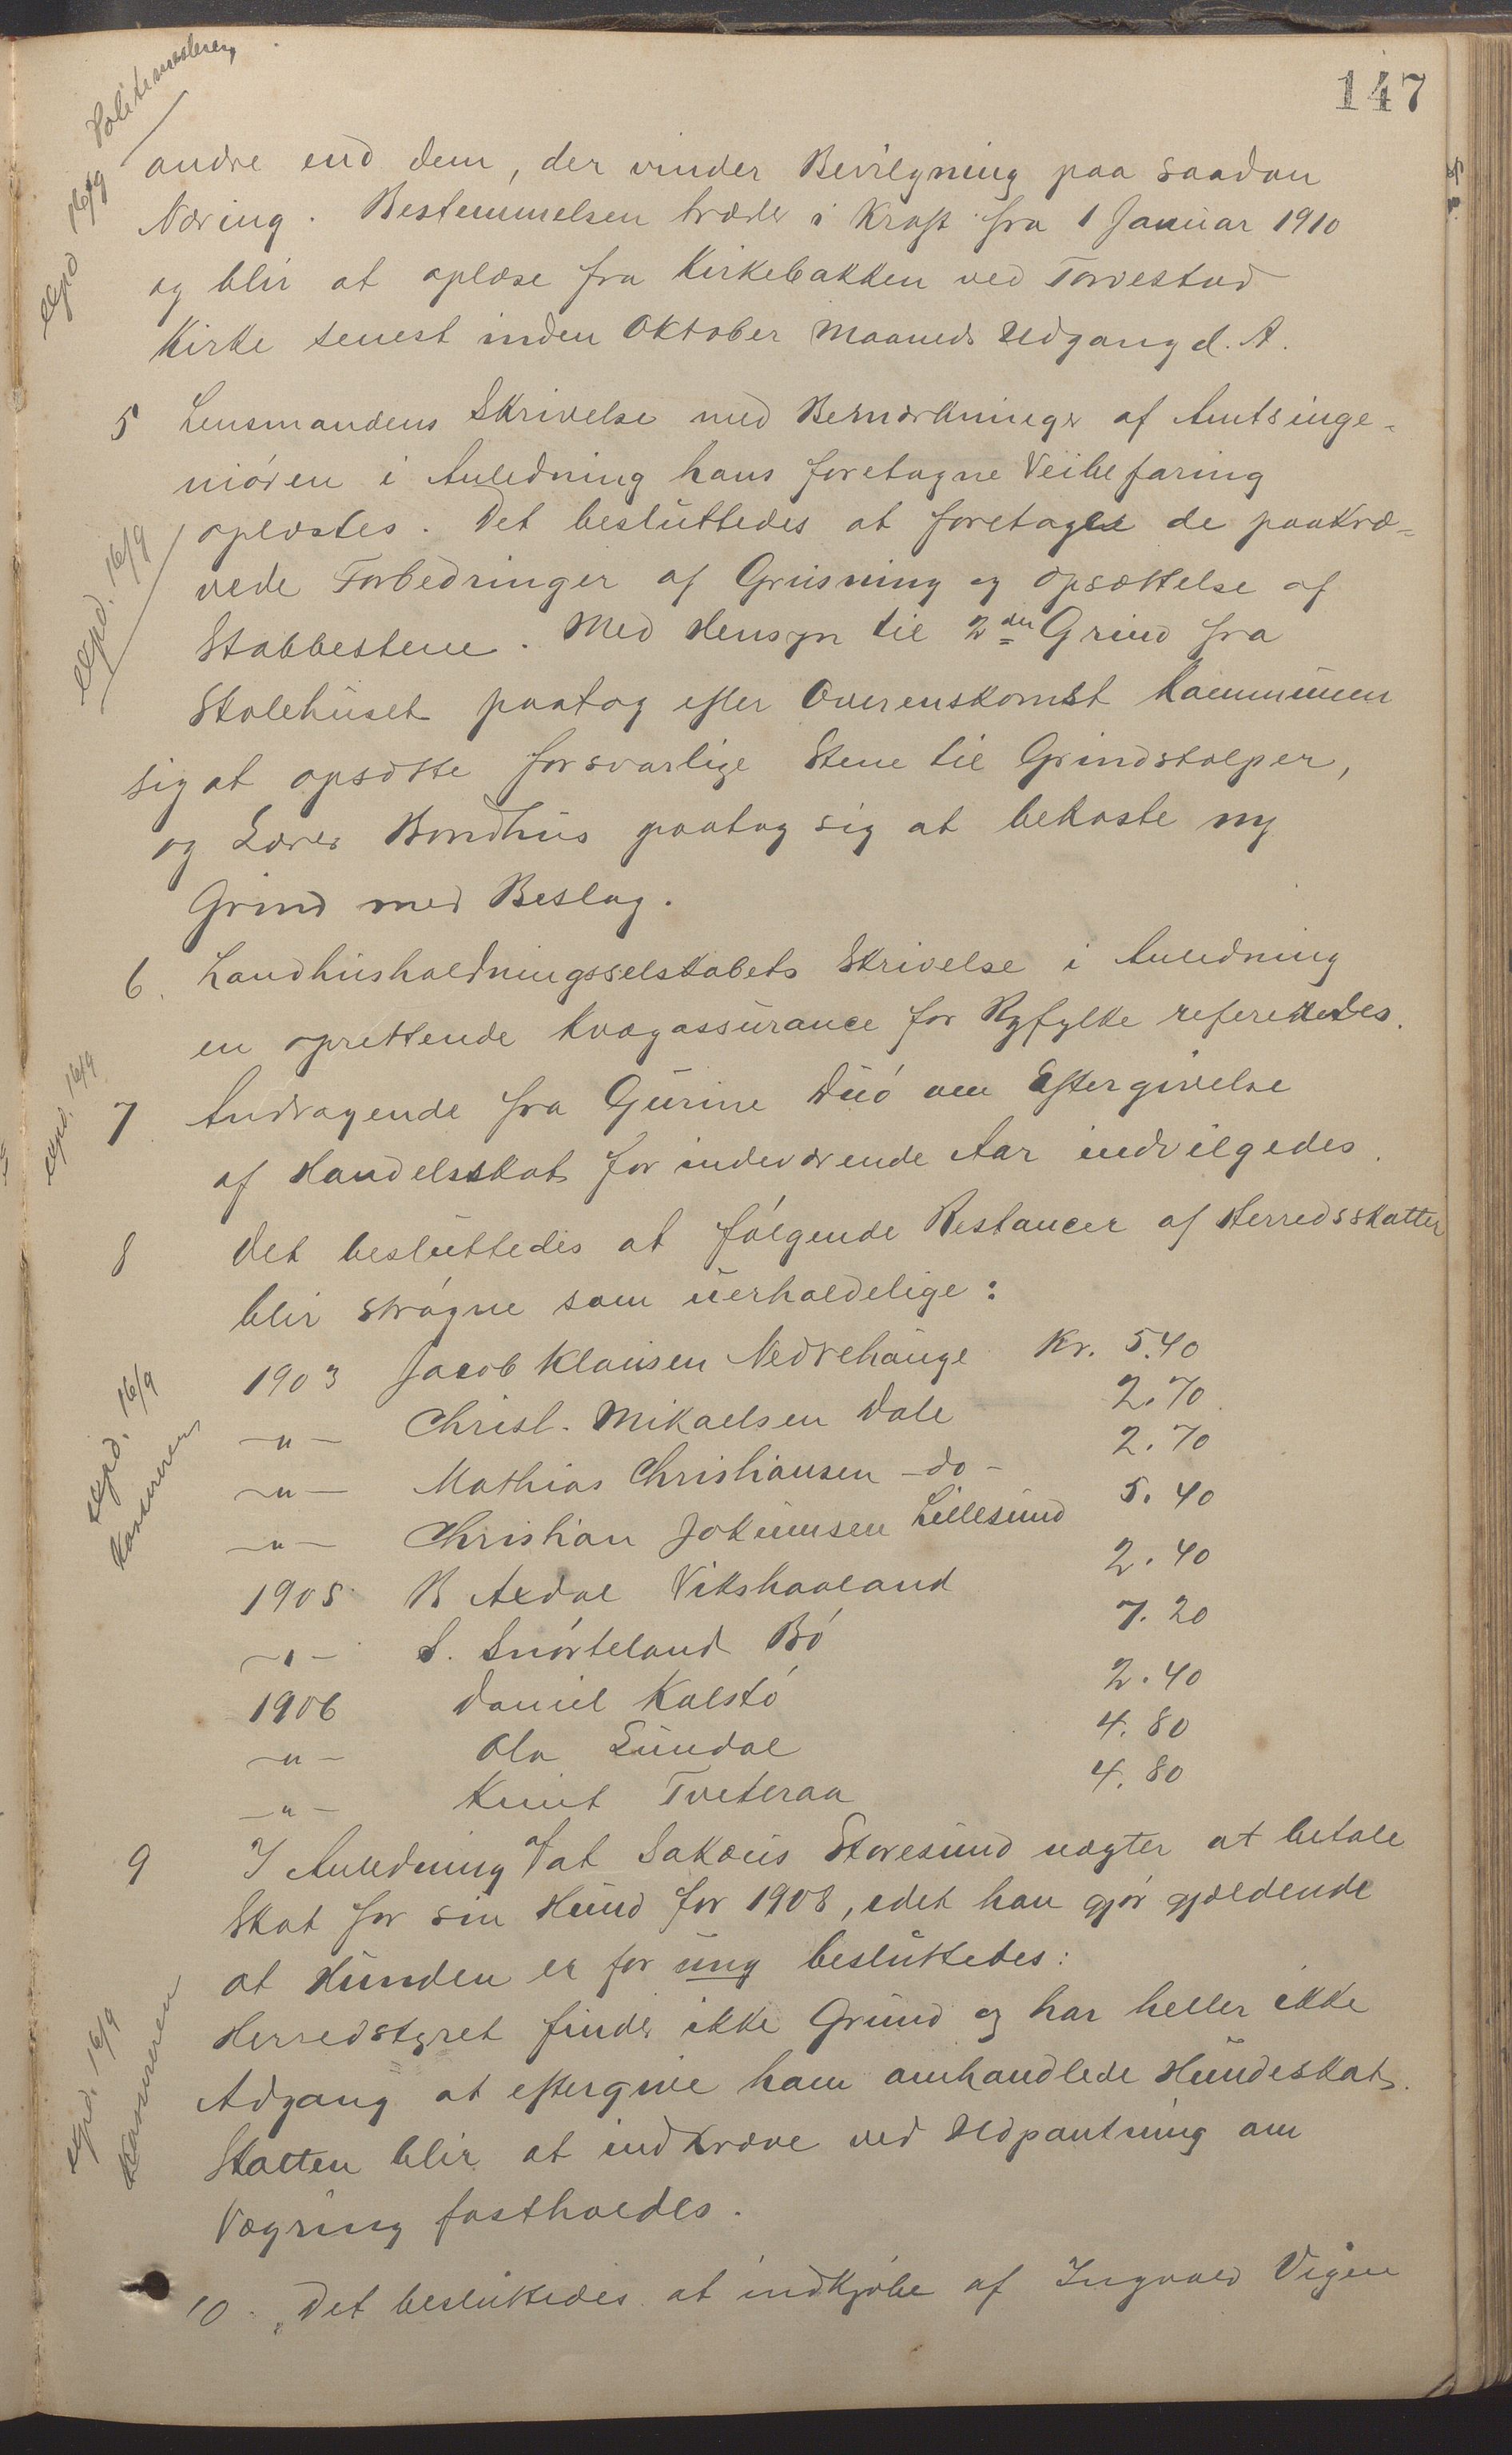 147
Politimesteren
expd 16/9
andre end dem, der vinder Bevilgning paa saadan
Næring. Bestemmelsen træder i Kraft fra 1 Januar 1910
og blir at oplæse fra Kirkebakken ved Torvestad
Kirke senest inden Oktober Maaneds Udgang d. A.
5 Lensmandens Skrivelse med Bemærkninger af Amtsinge-
niøren i Anledning hans foretagne Veibefaring
oplæstes. Det besluttedes at foretages de paakræ-
expd. 16/9
vede Forbedringer af Grusning og Opsættelse af
Stabbestene. Med Hensyn til 2den Grind fra
Skolehuset paatog efter Overenskomst Kommunen
sig at opsætte forsvarlige Stene til Grindstolper,
og Lærer Bondhus paatog sig at bekoste ny
Grind med Beslag.
6. Landhusholdningsselskabets Skrivelse i Anledning
en oprettende Kvægassurance for Ryfylke refereredes.
expd. 16/9
7 Andragende fra Gurine Duø om Eftergivelse
af Handelsskat for indeværende Aar indvilgedes.
8 Det besluttedes at følgende Restancer af Herredsskatter
blir strøgne som uerholdelige:
expd. 16/9
Kassereren
1903 Jacob Klausen Nedrehauge Kr. 5.40
-"- Christ. Mikaelsen Dale 2.70
-"- Mathias Christiansen -do- 2.70
-"- Christian Jokumsen Lillesund 5.40
1905 B Axdal Vikshaaland 2.40
-"- S. Snørteland Bø 7.20
1906 Daniel Kalstø 2.40
-"- Ola Sundal 4.80
-"- Knut Tveteraa 4.80
9 I Anledning af at Sakæus Storesund nægter at betale
Skat for sin Hund for 1908, idet han gjør gjældende
at Hunden er for ung besluttedes:
expd. 16/9
Kassereren
Herredstyret finder ikke Grund og har heller ikke
Adgang at eftergive ham omhandlede Hundeskat.
Skatten blir at indkræve ved Udpantning om
Vægring fastholdes.
10. Det besluttedes at indkjøbe af Ingvald Vigen